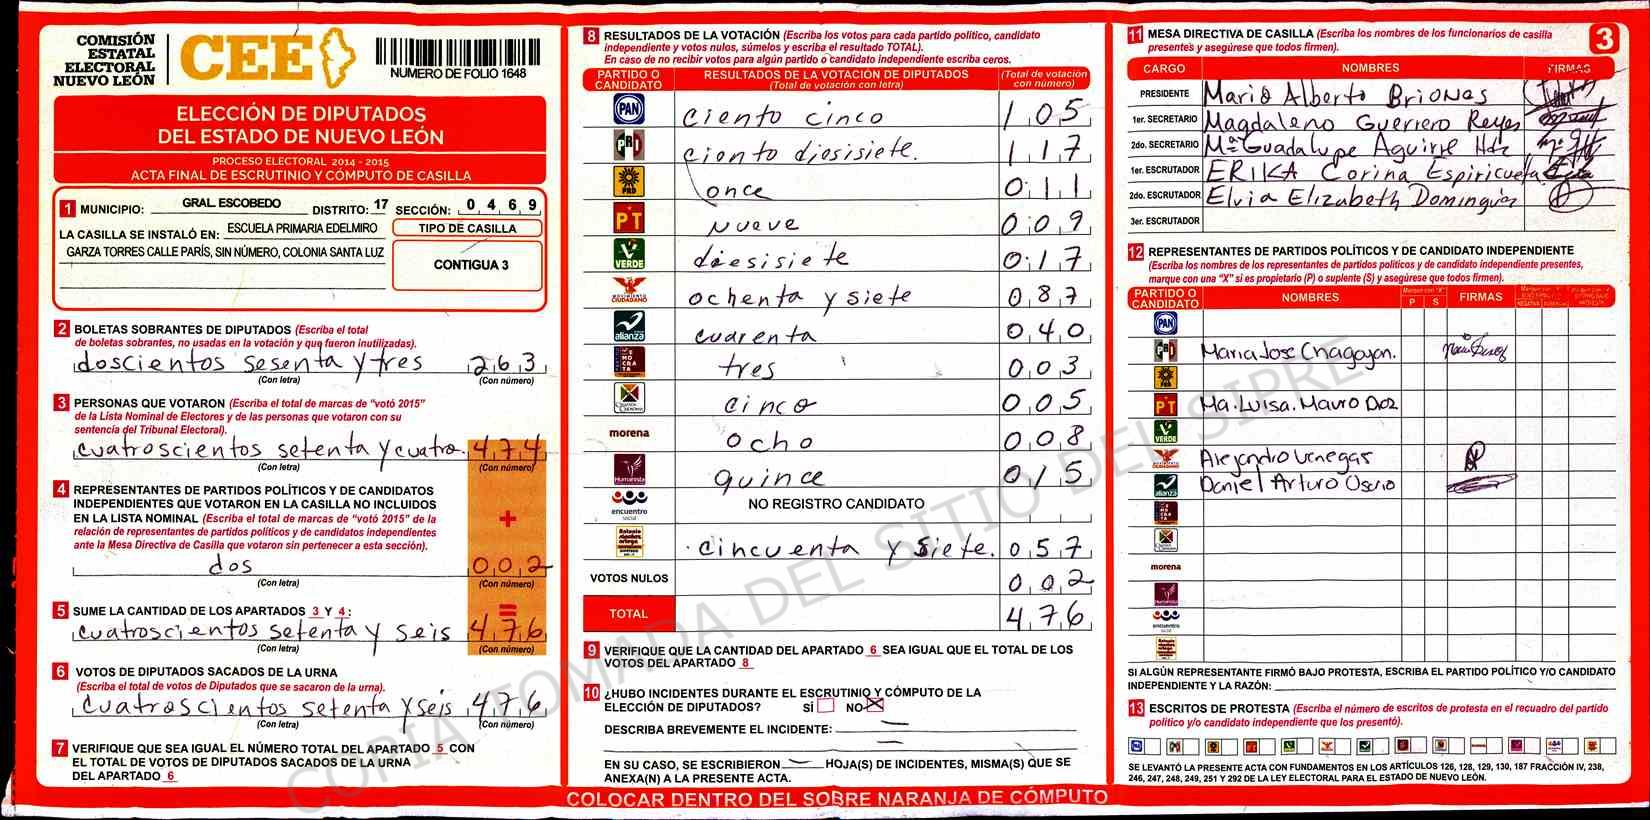 COMISIÓN
ESTATAL
ELECTORAL
NUEVO LEÓN
CEE
NUMERO DE FOLIO 1648
ELECCIÓN DE DIPUTADOS
DEL ESTADO DE NUEVO LEÓN
PROCESO ELECTORAL 2014 - 2015
ACTA FINAL DE ESCRUTINIO Y CÓMPUTO DE CASILLA
1 MUNICIPIO: GRAL. ESCOBEDO DISTRITO: 17 SECCIÓN: 0 4 6 9
LA CASILLA SE INSTALÓ EN: ESCUELA PRIMARIA EDELMIRO
GARZA TORRES CALLE PARÍS, SIN NÚMERO, COLONIA SANTA LUZ
TIPO DE CASILLA
CONTIGUA 3
2 BOLETAS SOBRANTES DE DIPUTADOS (Escriba el total
de boletas sobrantes, no usadas en la votación y que fueron inutilizadas).
doscientos sesenta y tres 263
(Con letra) (Con número)
3 PERSONAS QUE VOTARON (Escriba el total de marcas de "votó 2015"
de la Lista Nominal de Electores y de las personas que votaron con su
sentencia del Tribunal Electoral).
cuatroscientos setenta y cuatro. 474
(Con letra) (Con número)
4 REPRESENTANTES DE PARTIDOS POLÍTICOS Y DE CANDIDATOS
INDEPENDIENTES QUE VOTARON EN LA CASILLA NO INCLUIDOS
EN LA LISTA NOMINAL (Escriba el total de marcas de "votó 2015" de la
relación de representantes de partidos políticos y de candidatos independientes
ante la Mesa Directiva de Casilla que votaron sin pertenecer a esta sección).
+
dos 002
(Con letra) (Con número)
5 SUME LA CANTIDAD DE LOS APARTADOS 3 Y 4:
=
cuatroscientos setenta y seis 476
(Con letra) (Con número)
6 VOTOS DE DIPUTADOS SACADOS DE LA URNA
(Escriba el total de votos de Diputados que se sacaron de la urna).
cuatroscientos setenta y seis 476
(Con letra) (Con número)
7 VERIFIQUE QUE SEA IGUAL EL NÚMERO TOTAL DEL APARTADO 5 CON
EL TOTAL DE VOTOS DE DIPUTADOS SACADOS DE LA URNA
DEL APARTADO 6
8 RESULTADOS DE LA VOTACIÓN (Escriba los votos para cada partido político, candidato
independiente y votos nulos, súmelos y escriba el resultado TOTAL).
En caso de no recibir votos para algún partido o candidato independiente escriba ceros.
PARTIDO O CANDIDATO RESULTADOS DE LA VOTACIÓN DE DIPUTADOS (Total de votación con letra) (Total de votación con número)
PAN ciento cinco 105
PRI ciento diesisiete. 117
PRD once 011
PT nueve 009
VERDE diesisiete 017
MOVIMIENTO CIUDADANO ochenta y siete 087
alianza cuarenta 040
tres 003
cinco 005
morena ocho 008
Humanista quince 015
encuentro social NO REGISTRO CANDIDATO
cincuenta y siete. 057
VOTOS NULOS 002
TOTAL 476
9 VERIFIQUE QUE LA CANTIDAD DEL APARTADO 6 SEA IGUAL QUE EL TOTAL DE LOS
VOTOS DEL APARTADO 8
10 ¿HUBO INCIDENTES DURANTE EL ESCRUTINIO Y CÓMPUTO DE LA
ELECCIÓN DE DIPUTADOS? SÍ NO X
DESCRIBA BREVEMENTE EL INCIDENTE:
EN SU CASO, SE ESCRIBIERON HOJA(S) DE INCIDENTES, MISMA(S) QUE SE
ANEXA(N) A LA PRESENTE ACTA.
COLOCAR DENTRO DEL SOBRE NARANJA DE CÓMPUTO
3
11 MESA DIRECTIVA DE CASILLA (Escriba los nombres de los funcionarios de casilla
presentes y asegúrese que todos firmen).
CARGO NOMBRES FIRMAS
PRESIDENTE Mario Alberto Briones
1er. SECRETARIO Magdaleno Guerrero Reyes
2do. SECRETARIO Ma Guadalupe Aguirre Hdz
1er. ESCRUTADOR ERIKA Corina Espiricueta
2do. ESCRUTADOR Elvia Elizabeth Dominguez
3er. ESCRUTADOR
12 REPRESENTANTES DE PARTIDOS POLÍTICOS Y DE CANDIDATO INDEPENDIENTE
(Escriba los nombres de los representantes de partidos políticos y de candidato independiente presentes,
marque con una "X" si es propietario (P) o suplente (S) y asegúrese que todos firmen).
PARTIDO O CANDIDATO NOMBRES P S FIRMAS
PAN
PRI Maria Jose
PRD
PT Ma. Luisa. Mauro
VERDE
MOVIMIENTO CIUDADANO Alejandro Venegas
alianza Daniel Arturo Osorio
morena
Humanista
encuentro social
SI ALGÚN REPRESENTANTE FIRMÓ BAJO PROTESTA, ESCRIBA EL PARTIDO POLÍTICO Y/O CANDIDATO
INDEPENDIENTE Y LA RAZÓN:
13 ESCRITOS DE PROTESTA (Escriba el número de escritos de protesta en el recuadro del partido
político y/o candidato independiente que los presentó).
SE LEVANTÓ LA PRESENTE ACTA CON FUNDAMENTOS EN LOS ARTÍCULOS 126, 128, 129, 130, 187 FRACCIÓN IV, 238,
246, 247, 248, 249, 251 Y 292 DE LA LEY ELECTORAL PARA EL ESTADO DE NUEVO LEÓN.
COPIA TOMADA DEL SITIO DEL SIPRE